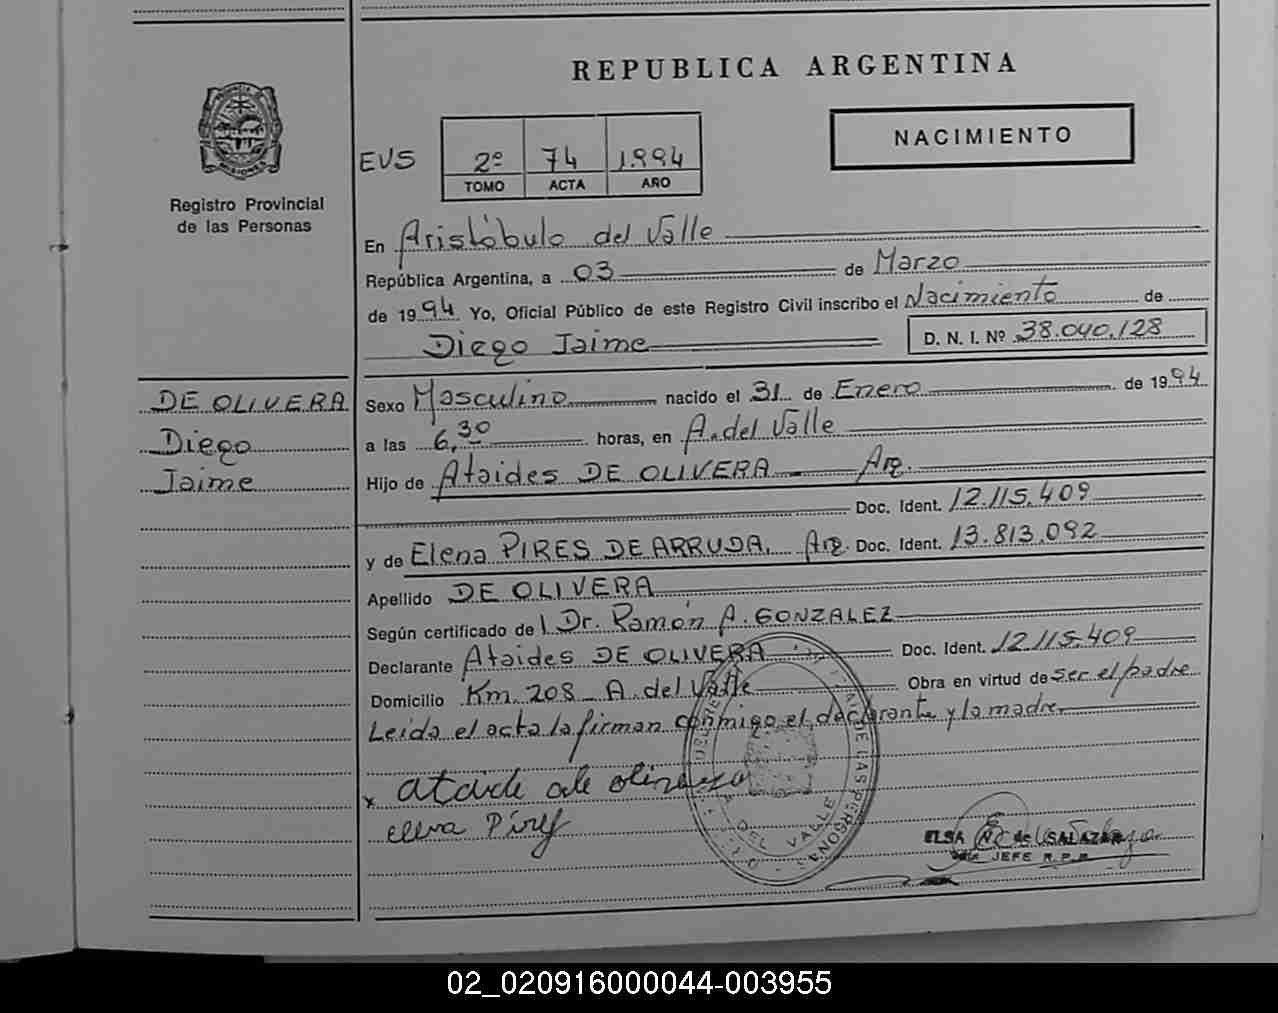 REPUBLICA ARGENTINA
NACIMIENTO
EVS 2º 74 1.994
TOMO ACTA AÑO
Registro Provincial
de las Personas
En Aristóbulo del Valle
República Argentina, a 03 de Marzo
de 1994 Yo, Oficial Público de este Registro Civil inscribo el Nacimiento de
Diego Jaime D. N. I. Nº 38.040.128
DE OLIVERA
Diego
Jaime
Sexo Masculino nacido el 31 de Enero de 1994
a las 6,30 horas, en A. del Valle
Hijo de Ataides DE OLIVERA Arg.
Doc. Ident. 12.115.409
y de Elena PIRES DE ARRUDA, Arg. Doc. Ident. 13.813.092
Apellido DE OLIVERA
Según certificado del Dr. Ramón A. GONZALEZ
Declarante Ataides DE OLIVERA Doc. Ident. 12.115.409
Domicilio Km. 208 - A. del Valle Obra en virtud de ser el padre
Leída el acta la firman conmigo el declarante y la madre.
x ataide de olivera
elena Pires
DE LAS PERSONAS
DEL VALLE
ELSA N. de SALAZAR
JEFE R.P.P.
02_020916000044-003955